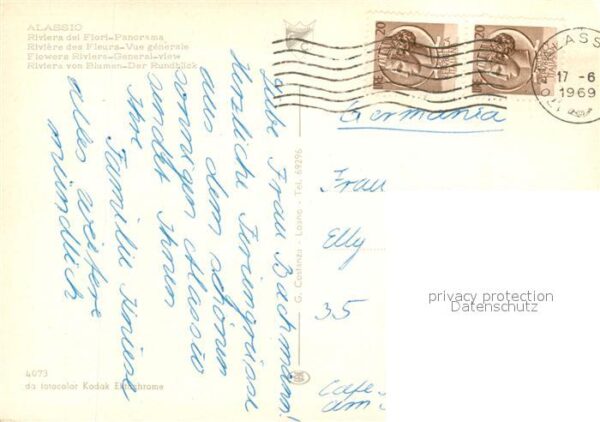 ALASSIO
Riviera dei Fiori-Panorama
Rivière des Fleurs-Vue générale
Flowers Riviera-General-view
Riviera von Blumen-Der Rundblick
Liebe Frau Bachmann!
Herzliche Feriengrüsse
aus dem schönen
sonnigen Alassio
sendet Ihnen
Ihre
Familie
alles weitere
mündlich
G. Costanzi - Loano - Tel. 69296
20
20
ALASS
17-6
1969
Germania
Frau
Elly
35
Cafe-
am
privacy protection
Datenschutz
4073
da fotocolor Kodak Ektachrome